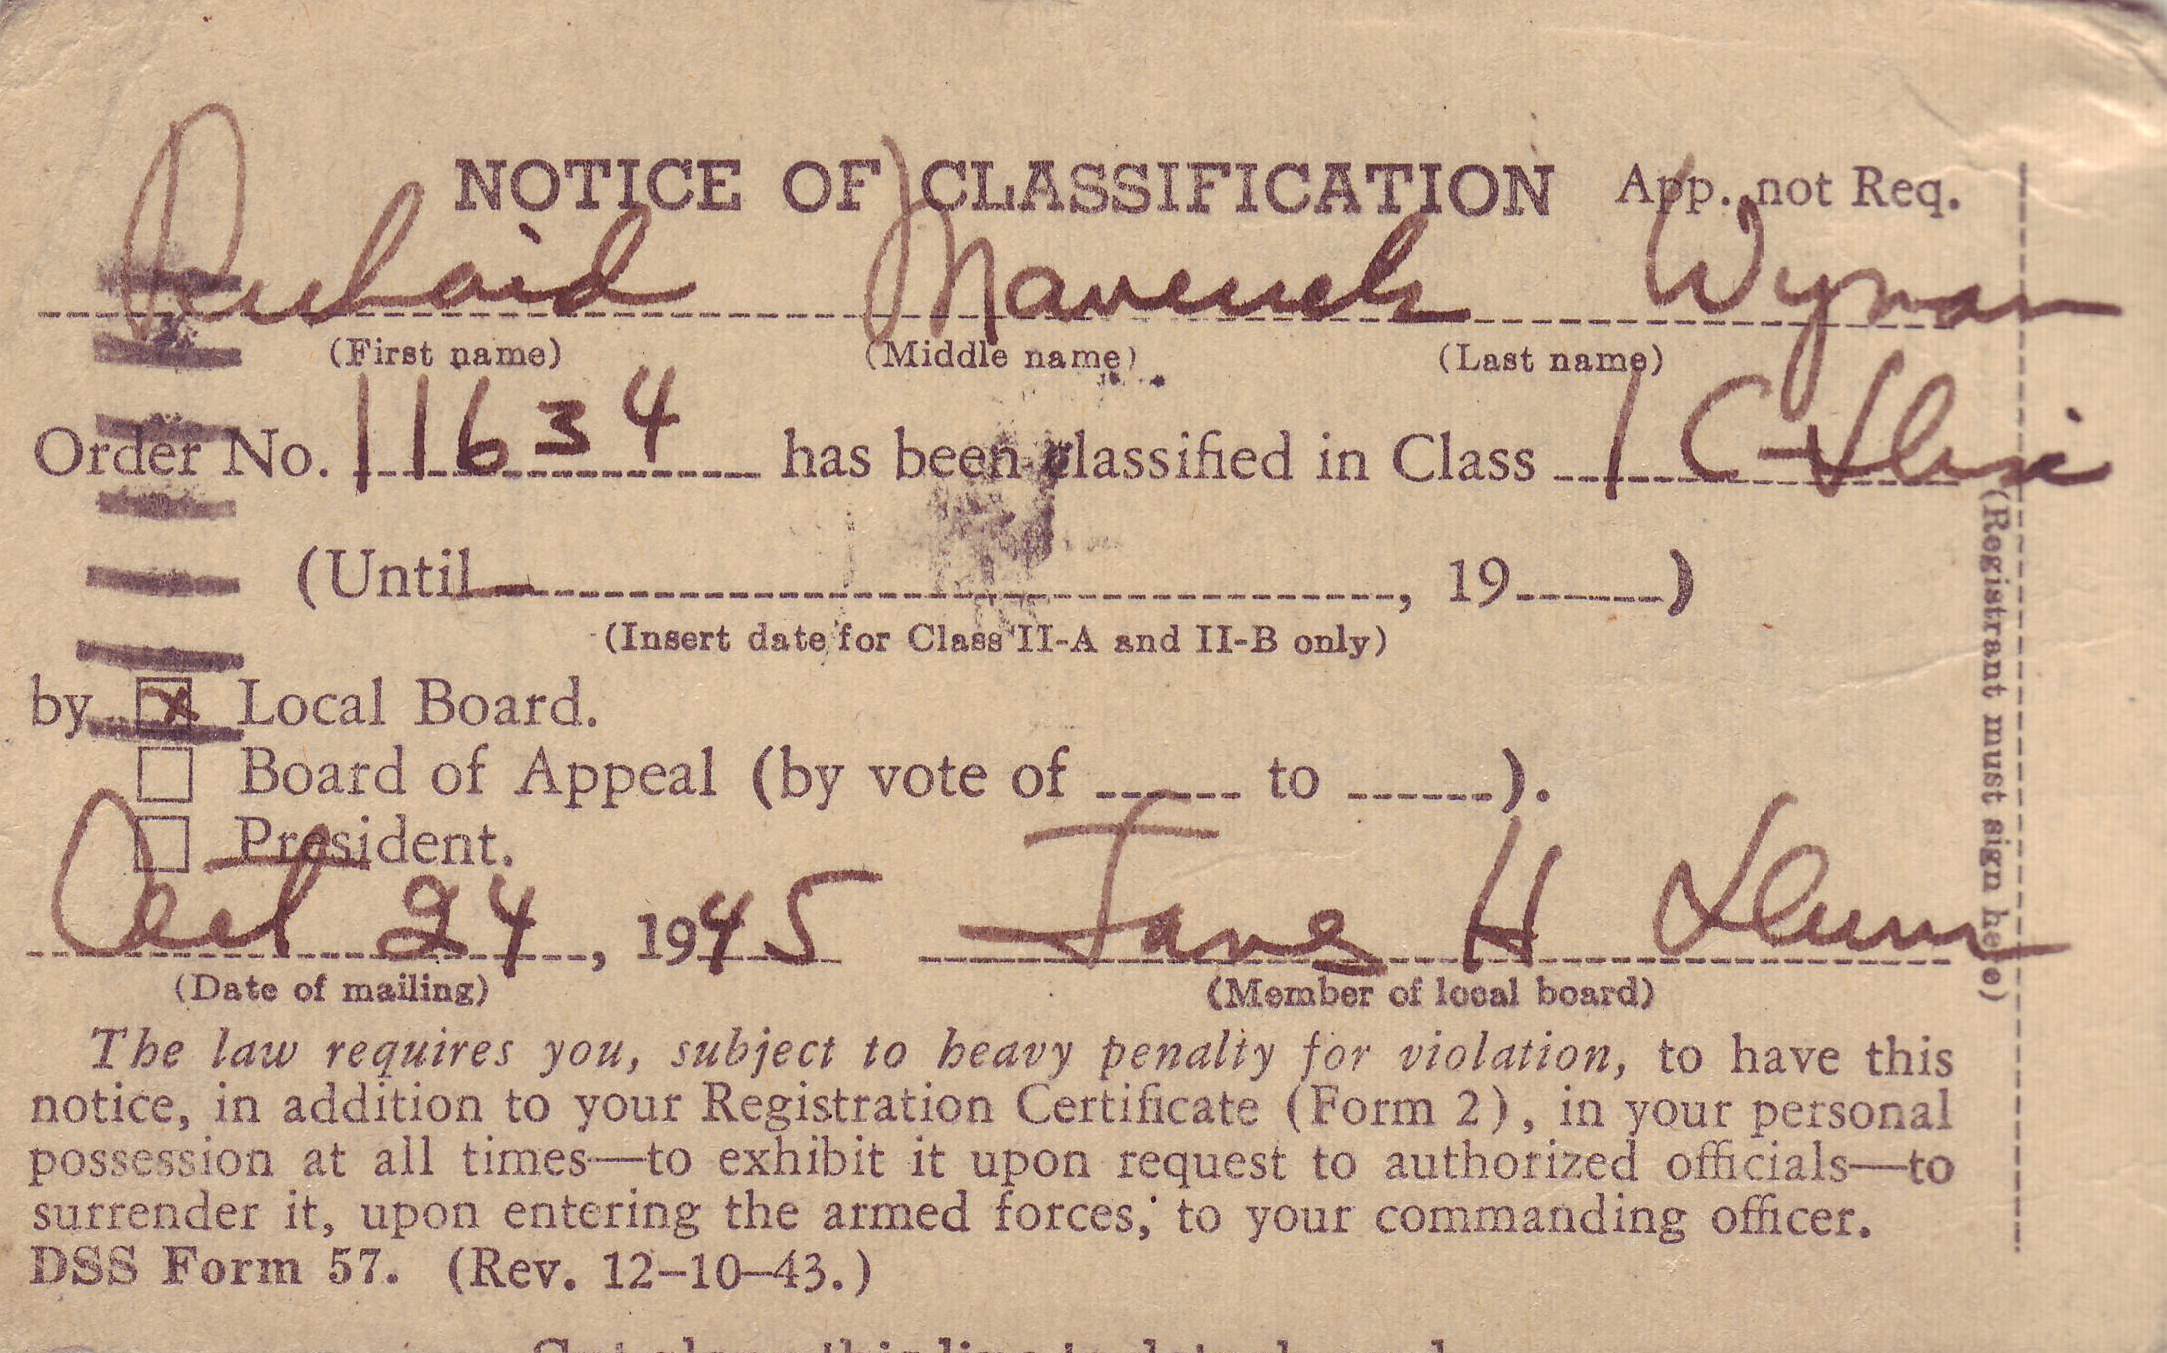 NOTICE OF CLASSIFICATION App. not Req.
Maverick Wyman
(First name) (Middle name) (Last name)
Order No. 11634 has been classified in Class 1 C-
(Until —, 19 )
(Insert date for Class II-A and II-B only)
by x Local Board.
Board of Appeal (by vote of to ).
President.
Oct 24, 1945 H
(Date of mailing) (Member of local board)
The law requires you, subject to heavy penalty for violation, to have this
notice, in addition to your Registration Certificate (Form 2), in your personal
possession at all times—to exhibit it upon request to authorized officials—to
surrender it, upon entering the armed forces, to your commanding officer.
DSS Form 57. (Rev. 12-10-43.)
(Registrant must sign here)